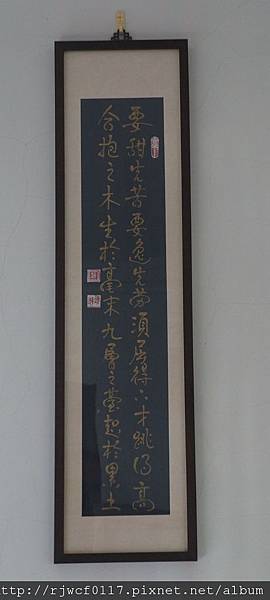 要甜先苦要逸先勞須屈得下才跳得高
合抱之木生於毫末九層之臺起於累土
http://rjwcf0117.pixnet.net/album